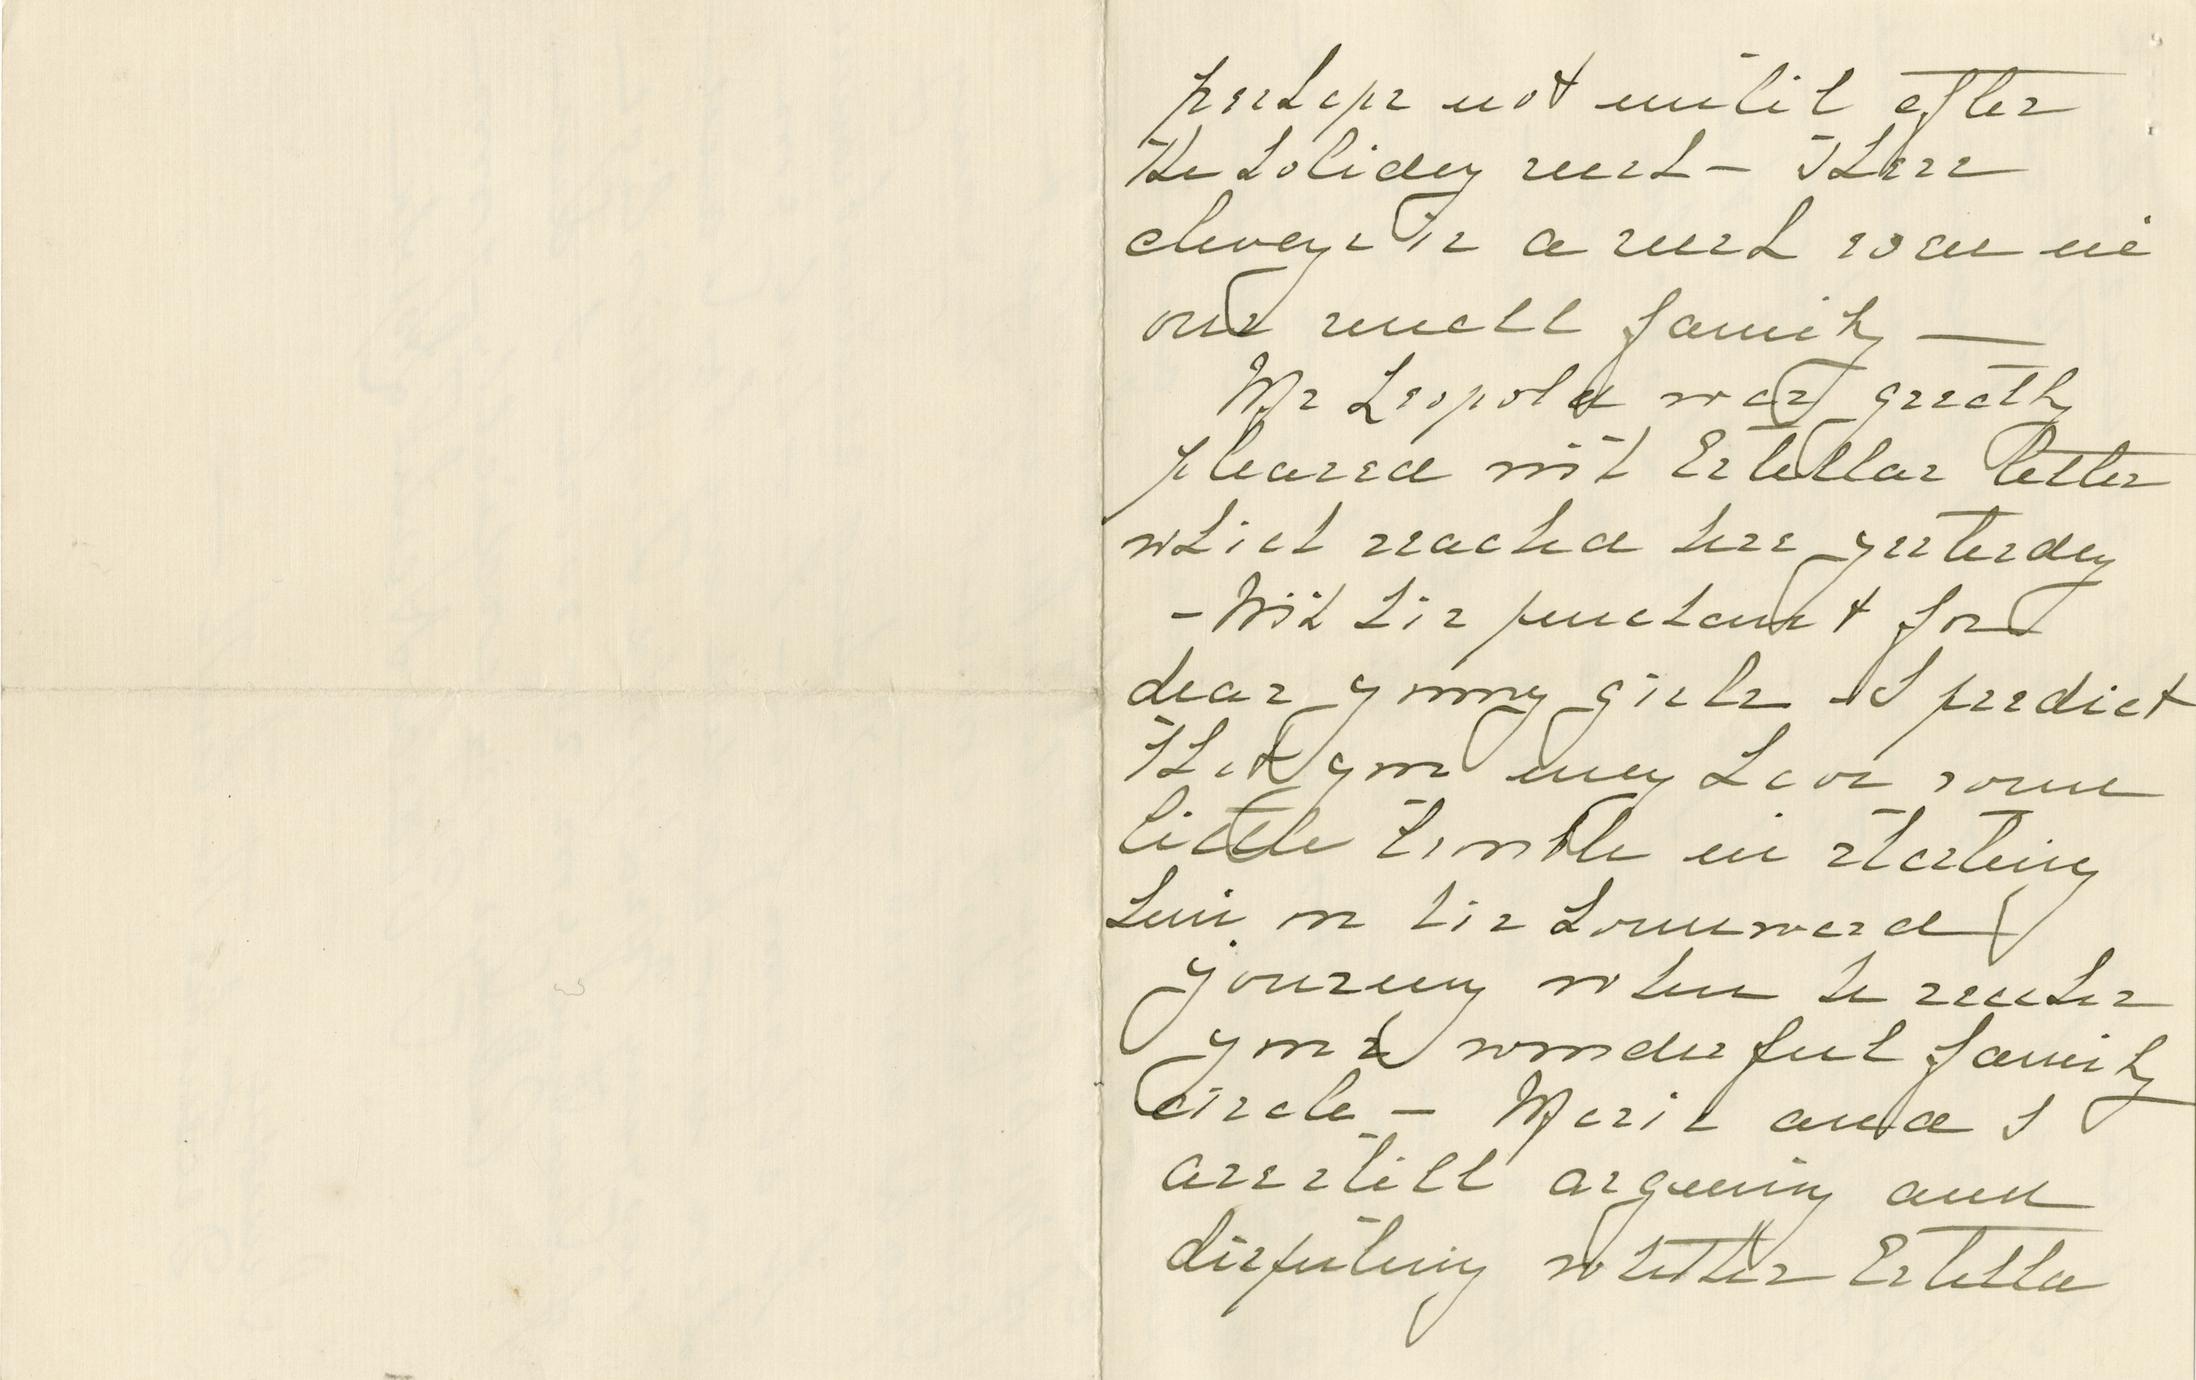 perhaps not until after
the holiday rush – There
always is a rush even in
our small family —
Mr Leopold was greatly
pleased with Estellas letter
which reached here yesterday
– With his penchant for
dear young girls – I predict
that you may have some
little trouble in starting
him on his homeward
journey when he reaches
your wonderful family
circle – Marie and I
are still arguing and
disputing whether Estella